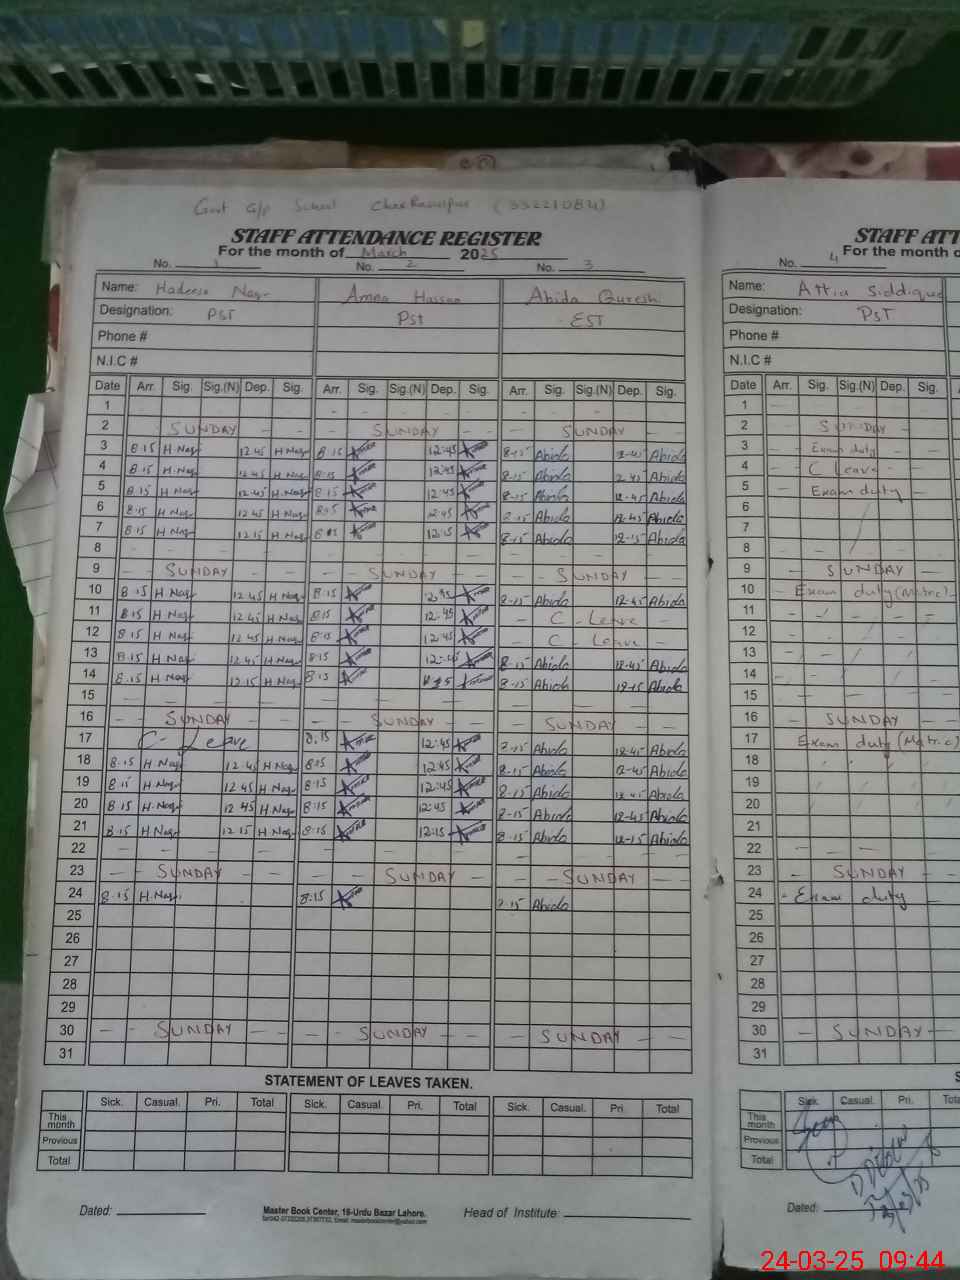 Govt G/P School Chak Rasulpur (33221084)
STAFF ATTENDANCE REGISTER
For the month of March 2025
No. 1 No. 2 No. 3
Name: Hadeesa Nasr Amna Hassan Abida Qureshi
Designation: PST Pst EST
Phone #
N.I.C #
Date Arr. Sig. Sig.(N) Dep. Sig. Arr. Sig. Sig.(N) Dep. Sig. Arr. Sig. Sig.(N) Dep. Sig.
1 - - - -
2 SUNDAY SUNDAY SUNDAY
3 8.15 H Nasr 12 45 H Nasr 8.15 12:45 8-15 Abida 12-45 Abida
4 8.15 H Nasr 12 45 H Nasr 8.15 12:45 8-15 Abida 2-45 Abida
5 8.15 H Nasr 12 45 H Nasr 8.15 12:45 8-15 Abida 12-45 Abida
6 8.15 H Nasr 12 45 H Nasr 8.15 12:45 8-15 Abida 12-45 Abida
7 8.15 H Nasr 12 15 H Nasr 8.15 12:15 8-15 Abida 12-15 Abida
8 - - - -
9 SUNDAY SUNDAY SUNDAY
10 8.15 H Nasr 12 45 H Nasr 8.15 8-15 Abida 12-45 Abida
11 8.15 H Nasr 12 45 H Nasr 8.15 12:45 C - Leave
12 8.15 H Nasr 12 45 H Nasr 8.15 12:45 C - Leave
13 8.15 H Nasr 12 45 H Nasr 8.15 12:45 8-15 Abida 12-45 Abida
14 8.15 H Nasr 12 15 H Nasr 8.15 8-15 Abida 12-15 Abida
15 - - - -
16 SUNDAY SUNDAY SUNDAY
17 C - Leave 8.15 12:45 8-15 Abida 12-45 Abida
18 8.15 H Nasr 12 45 H Nasr 8.15 12:45 8-15 Abida 12-45 Abida
19 8.15 H Nasr 12 45 H Nasr 8.15 12:45 8-15 Abida 12-45 Abida
20 8 15 H Nasr 12 45 H Nasr 8:15 12:45 8-15 Abida 12-45 Abida
21 8.15 H Nasr 12 15 H Nasr 8.15 12:15 8-15 Abida 12-15 Abida
22 - - - -
23 SUNDAY SUNDAY SUNDAY
24 8.15 H Nasr 8:15 8-15 Abida
25
26
27
28
29
30 SUNDAY SUNDAY SUNDAY
31
STATEMENT OF LEAVES TAKEN.
Sick. Casual. Pri. Total Sick. Casual. Pri. Total Sick. Casual. Pri. Total
This month
Previous
Total
Dated: Master Book Center, 16-Urdu Bazar Lahore. Head of Institute:
STAFF ATT
For the month o
No. 4
Name: Attia Siddique
Designation: PST
Phone #
N.I.C #
Date Arr. Sig. Sig.(N) Dep. Sig.
1
2 SUNDAY
3 Exam duty
4 C Leave
5 - Exam duty -
6
7
8
9 SUNDAY
10 - Exam duty (Matric) -
11
12
13
14
15
16 - SUNDAY -
17 Exam duty (Matric)
18
19
20
21
22
23 SUNDAY
24 - Exam duty -
25
26
27
28
29
30 - SUNDAY -
31
S
Sick. Casual. Pri. Tota
This month
Previous
Total
Dated:
24-03-25 09:44